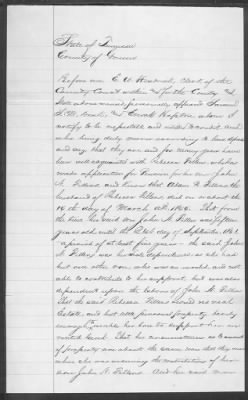 State of Tennessee
County of Greene
Before me E. W. Headrick, Clerk of the
County Court within & for the County &
State above named personally appeared Samuel
whom I
certify to be respectable and entitled to credit. And
who being duly sworn according to law depose
and say that they are and for many years have
been well acquainted with Rebecca Fellers who has
made application for Pension for her son John
A. Fellers, and know that Adam Fellers the
husband of Rebecca Fellers died on or about the
14th day of March A.D. 1855. That from
the time the said son John A. Fellers was fifteen
years old until the 23rd day of September 1861
a period of at least five years the said John
A. Fellers was her sole dependence as she had
but one other son who was and not
able to contribute to her support, but was also
dependent upon the labors of John A. Fellers
That the said Rebecca Fellers owned no real
Estate, and but little personal property barely
enough to enable her how to support her on
rented land. That her circumstances as to amount
of property are about the same now that they were
when she was receiving the contributions of her
son John A. Fellers. And he said son